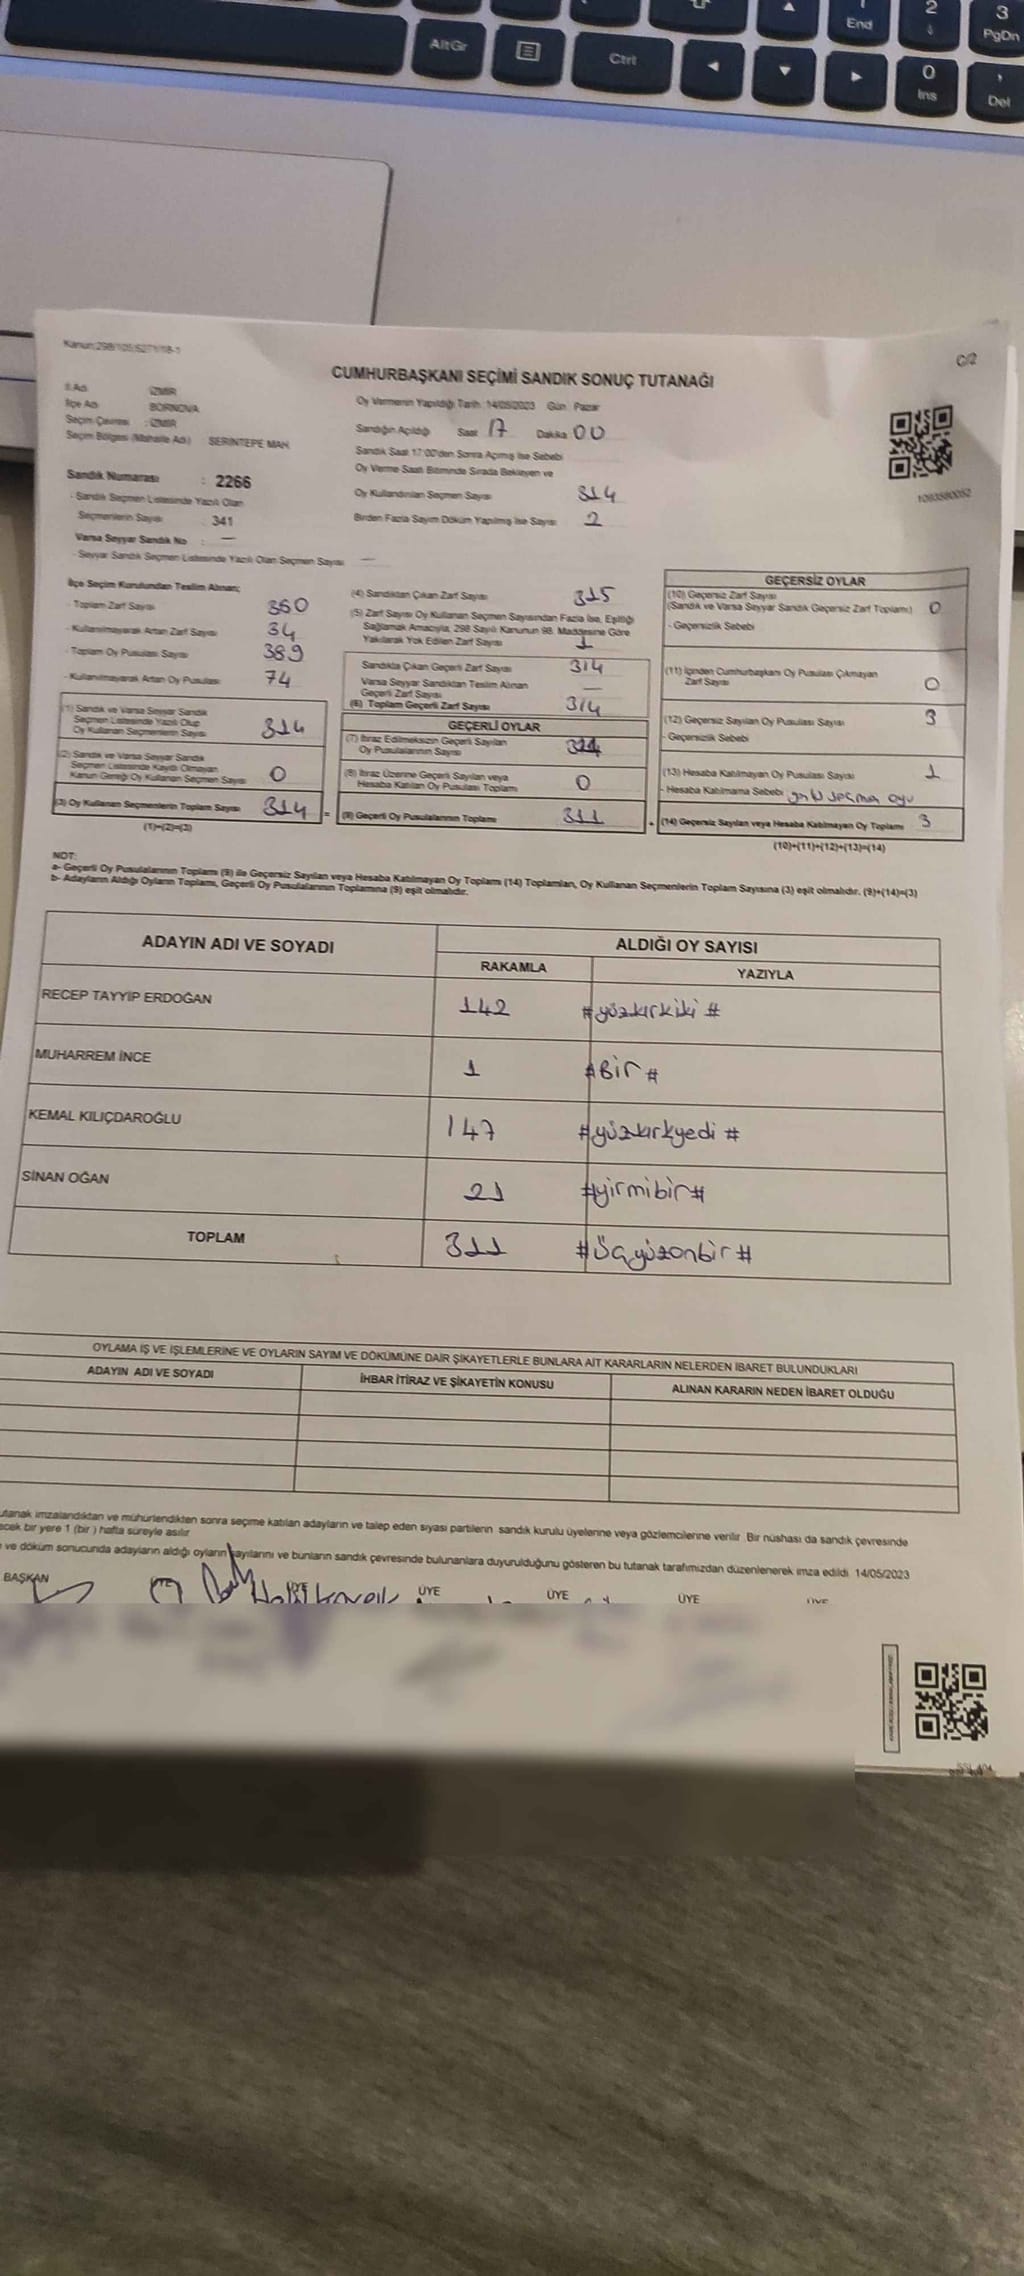 AltGr
Ctrl
End
2
3
PgDn
0
Ins
,
Del
Kanun:298/105;6271/18-1
C/2
CUMHURBAŞKANI SEÇİMİ SANDIK SONUÇ TUTANAĞI
İl Adı İZMİR
İlçe Adı BORNOVA
Seçim Çevresi : İZMİR
Seçim Bölgesi (Mahalle Adı) SERİNTEPE MAH.
Oy Vermenin Yapıldığı Tarih: 14/05/2023 Gün: Pazar
Sandığın Açıldığı Saat 17 Dakika 00
Sandık Saat 17:00'den Sonra Açılmış İse Sebebi
Oy Verme Saati Bitiminde Sırada Bekleyen ve
Oy Kullandırılan Seçmen Sayısı 314
Birden Fazla Sayım Döküm Yapılmış İse Sayısı 2
Sandık Numarası : 2266
- Sandık Seçmen Listesinde Yazılı Olan
Seçmenlerin Sayısı : 341
Varsa Seyyar Sandık No : —
- Seyyar Sandık Seçmen Listesinde Yazılı Olan Seçmen Sayısı —
1093580052
İlçe Seçim Kurulundan Teslim Alınan;
- Toplam Zarf Sayısı 350
- Kullanılmayarak Artan Zarf Sayısı 34
- Toplam Oy Pusulası Sayısı 389
- Kullanılmayarak Artan Oy Pusulası 74
(1) Sandık ve Varsa Seyyar Sandık
Seçmen Listesinde Yazılı Olup
Oy Kullanan Seçmenlerin Sayısı 314
(2) Sandık ve Varsa Seyyar Sandık
Seçmen Listesinde Kayıtlı Olmayan
Kanun Gereği Oy Kullanan Seçmen Sayısı 0
(3) Oy Kullanan Seçmenlerin Toplam Sayısı 314 =
(1)+(2)=(3)
(4) Sandıktan Çıkan Zarf Sayısı 315
(5) Zarf Sayısı Oy Kullanan Seçmen Sayısından Fazla İse, Eşitliği
Sağlamak Amacıyla, 298 Sayılı Kanunun 98. Maddesine Göre
Yakılarak Yok Edilen Zarf Sayısı 1
Sandıkta Çıkan Geçerli Zarf Sayısı 314
Varsa Seyyar Sandıktan Teslim Alınan
Geçerli Zarf Sayısı —
(6) Toplam Geçerli Zarf Sayısı 314
GEÇERLİ OYLAR
(7) İtiraz Edilmeksizin Geçerli Sayılan
Oy Pusulalarının Sayısı
(8) İtiraz Üzerine Geçerli Sayılan veya
Hesaba Katılan Oy Pusulası Toplamı 0
(9) Geçerli Oy Pusulalarının Toplamı 311 +
GEÇERSİZ OYLAR
(10) Geçersiz Zarf Sayısı
(Sandık ve Varsa Seyyar Sandık Geçersiz Zarf Toplamı) 0
- Geçersizlik Sebebi
(11) İçinden Cumhurbaşkanı Oy Pusulası Çıkmayan
Zarf Sayısı 0
(12) Geçersiz Sayılan Oy Pusulası Sayısı 3
- Geçersizlik Sebebi
(13) Hesaba Katılmayan Oy Pusulası Sayısı 1
- Hesaba Katılmama Sebebi seçmen oyu
(14) Geçersiz Sayılan veya Hesaba Katılmayan Oy Toplamı 3
(10)+(11)+(12)+(13)=(14)
NOT:
a- Geçerli Oy Pusulalarının Toplamı (9) ile Geçersiz Sayılan veya Hesaba Katılmayan Oy Toplamı (14) Toplamları, Oy Kullanan Seçmenlerin Toplam Sayısına (3) eşit olmalıdır. (9)+(14)=(3)
b- Adayların Aldığı Oyların Toplamı, Geçerli Oy Pusulalarının Toplamına (9) eşit olmalıdır.
ADAYIN ADI VE SOYADI ALDIĞI OY SAYISI
RAKAMLA YAZIYLA
RECEP TAYYİP ERDOĞAN 142 #yüzkırkiki#
MUHARREM İNCE 1 #Bir#
KEMAL KILIÇDAROĞLU 147 #yüzkırkyedi#
SİNAN OĞAN 21 #yirmibir#
TOPLAM 311 #Üçyüzonbir#
OYLAMA İŞ VE İŞLEMLERİNE VE OYLARIN SAYIM VE DÖKÜMÜNE DAİR ŞİKAYETLERLE BUNLARA AİT KARARLARIN NELERDEN İBARET BULUNDUKLARI
ADAYIN ADI VE SOYADI İHBAR İTİRAZ VE ŞİKAYETİN KONUSU ALINAN KARARIN NEDEN İBARET OLDUĞU
utanak imzalandıktan ve mühürlendikten sonra seçime katılan adayların ve talep eden siyasi partilerin sandık kurulu üyelerine veya gözlemcilerine verilir. Bir nüshası da sandık çevresinde
ecek bir yere 1 (bir ) hafta süreyle asılır
ve döküm sonucunda adayların aldığı oyların sayılarını ve bunların sandık çevresinde bulunanlara duyurulduğunu gösteren bu tutanak tarafımızdan düzenlenerek imza edildi. 14/05/2023
BAŞKAN ÜYE ÜYE ÜYE ÜYE